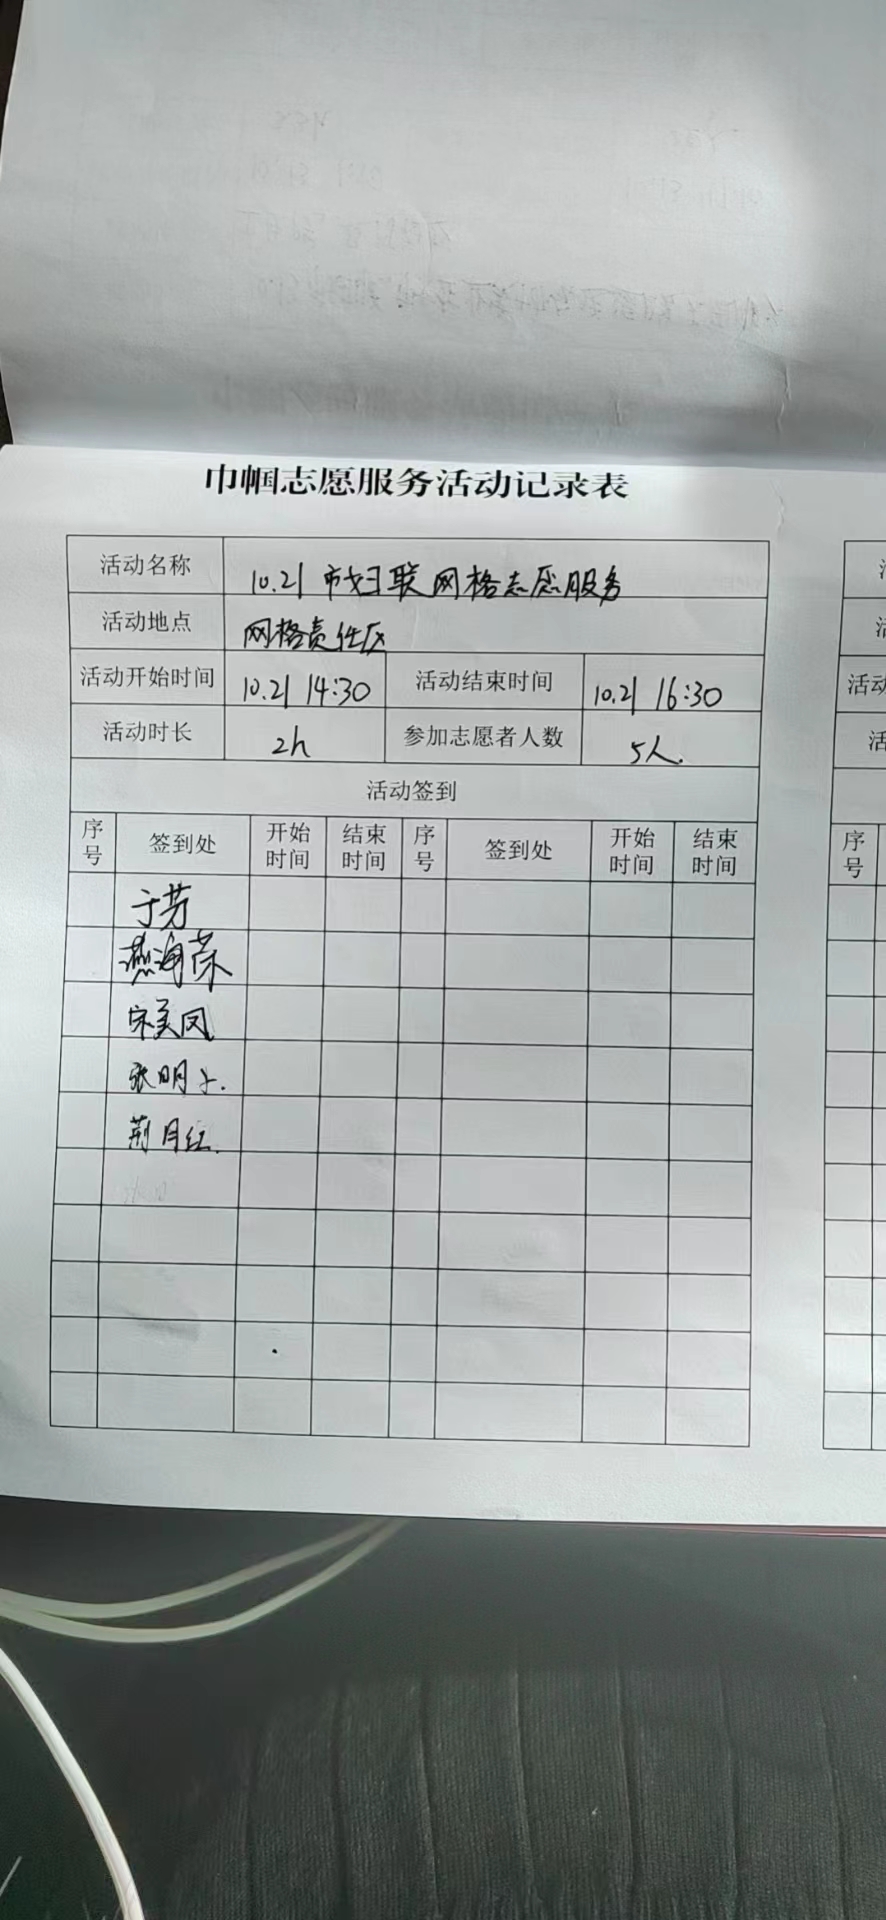 巾帼志愿服务活动记录表
活动名称 10.21 市妇联网格志愿服务
活动地点 网格责任区
活动开始时间 10.21 14:30 活动结束时间 10.21 16:30
活动时长 2h 参加志愿者人数 5人.
活动签到
序号 签到处 开始时间 结束时间 序号 签到处 开始时间 结束时间
于芳
燕海荣
宋美凤
张明
荆月红.
活
活
活动
活
序号